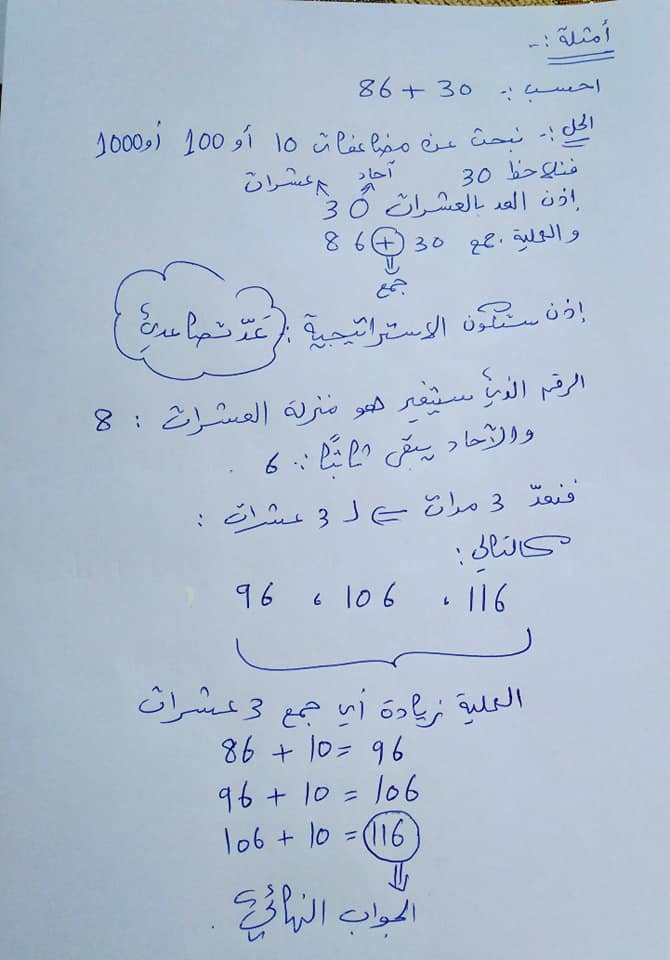 أمثلة :-
احسب :- 30 + 86
الحل :- نبحث عن مضاعفات 10 أو 100 أو 1000
فنلاحظ 30 آحاد عشرات
إذن العد بالعشرات 30
والعملية جمع 30 + 86
جمع
إذن ستكون الاستراتيجية : عَدّ تصاعدي
الرقم الذي سيتغير هو منزلة العشرات : 8
والآحاد يبقى ثابتًا :- 6 .
فنعدّ 3 مرات ⇐ لـ 3 عشرات :
كالتالي :
96 ، 106 ، 116
العملية زيادة أي جمع 3 عشرات
86 + 10 = 96
96 + 10 = 106
106 + 10 = 116
الجواب النهائي .